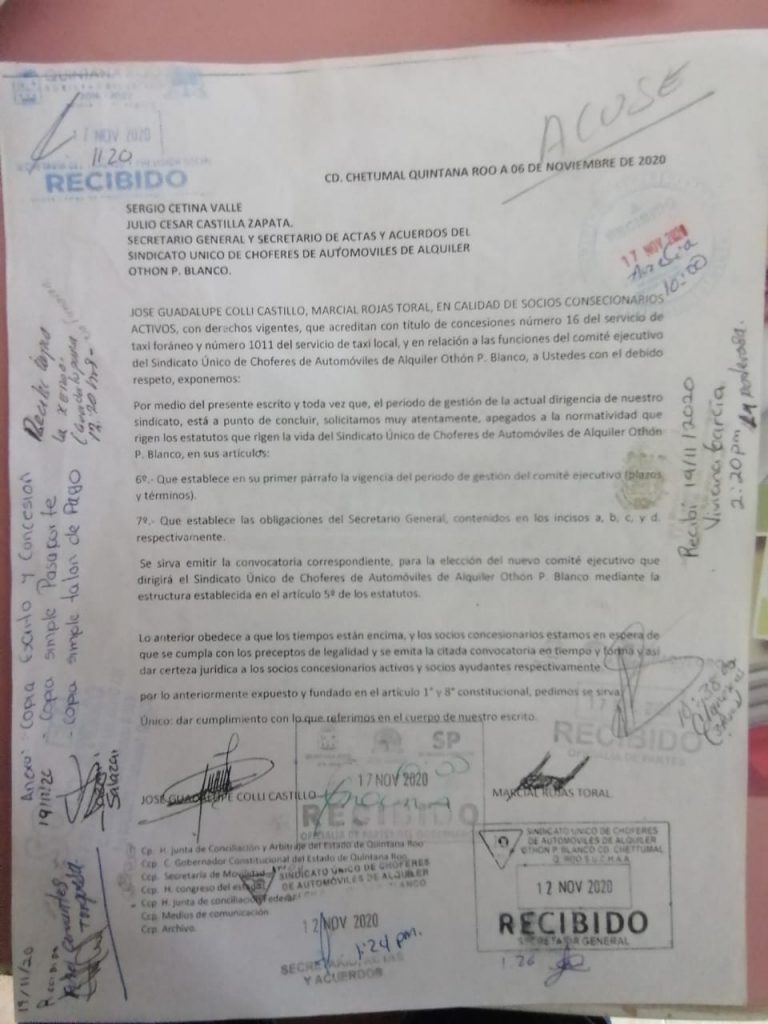 ACUSE
QUINTANA
17 NOV 2020
11:20
RECIBIDO
CD. CHETUMAL QUINTANA ROO A 06 DE NOVIEMBRE DE 2020
SERGIO CETINA VALLE
JULIO CESAR CASTILLA ZAPATA.
SECRETARIO GENERAL Y SECRETARIO DE ACTAS Y ACUERDOS DEL
SINDICATO UNICO DE CHOFERES DE AUTOMOVILES DE ALQUILER
OTHON P. BLANCO.
RECIBIDO
17 NOV 2020
10:00
JOSE GUADALUPE COLLI CASTILLO, MARCIAL ROJAS TORAL, EN CALIDAD DE SOCIOS CONSECIONARIOS
ACTIVOS, con derechos vigentes, que acreditan con titulo de concesiones número 16 del servicio de
taxi foráneo y número 1011 del servicio de taxi local, y en relación a las funciones del comité ejecutivo
del Sindicato Único de Choferes de Automóviles de Alquiler Othón P. Blanco, a Ustedes con el debido
respeto, exponemos:
Por medio del presente escrito y toda vez que, el periodo de gestión de la actual dirigencia de nuestro
sindicato, está a punto de concluir, solicitamos muy atentamente, apegados a la normatividad que
rigen los estatutos que rigen la vida del Sindicato Único de Choferes de Automóviles de Alquiler Othón
P. Blanco, en sus artículos:
6º.- Que establece en su primer párrafo la vigencia del periodo de gestión del comité ejecutivo (plazos
y términos).
7º.- Que establece las obligaciones del Secretario General, contenidos en los incisos a, b, c, y d.
respectivamente.
Se sirva emitir la convocatoria correspondiente, para la elección del nuevo comité ejecutivo que
dirigirá el Sindicato Único de Choferes de Automóviles de Alquiler Othón P. Blanco mediante la
estructura establecida en el artículo 5º de los estatutos.
Lo anterior obedece a que los tiempos están encima, y los socios concesionarios estamos en espera de
que se cumpla con los preceptos de legalidad y se emita la citada convocatoria en tiempo y forma y asi
dar certeza jurídica a los socios concesionarios activos y socios ayudantes respectivamente
por lo anteriormente expuesto y fundado en el artículo 1° y 8° constitucional, pedimos se sirva
Único: dar cumplimiento con lo que referimos en el cuerpo de nuestro escrito.
JOSE GUADALUPE COLLI CASTILLO
MARCIAL ROJAS TORAL
SP
17 NOV 2020
RECIBIDO
RECIBIDO
OFICIALIA DE PARTES
Cp. H. junta de Conciliación y Arbitraje del Estado de Quintana Roo
Ccp. C. Gobernador Constitucional del Estado de Quintana Roo
Ccp. Secretaría de Movilidad
Ccp. H. congreso del estado
Ccp H. junta de conciliación Federal
Ccp. Medios de comunicación
Ccp. Archivo.
SINDICATO ÚNICO DE CHOFERES
DE AUTOMÓVILES DE ALQUILER
12 NOV 2020
1:24 pm.
Y ACUERDOS
SINDICATO UNICO DE CHOFERES
DE AUTOMOVILES DE ALQUILER
OTHON P. BLANCO CD. CHETUMAL
Q. ROO S.U.C.H.A.A
12 NOV 2020
RECIBIDO
SECRETARIO GENERAL
1:26
Recibí 19/11/2020
Viviana García
2:20pm
Anexo: - Copia Escrito y Concesion
- Copia simple Pasaporte
- Copia simple talon de Pago
19/11/20
Salazar
19/11/20